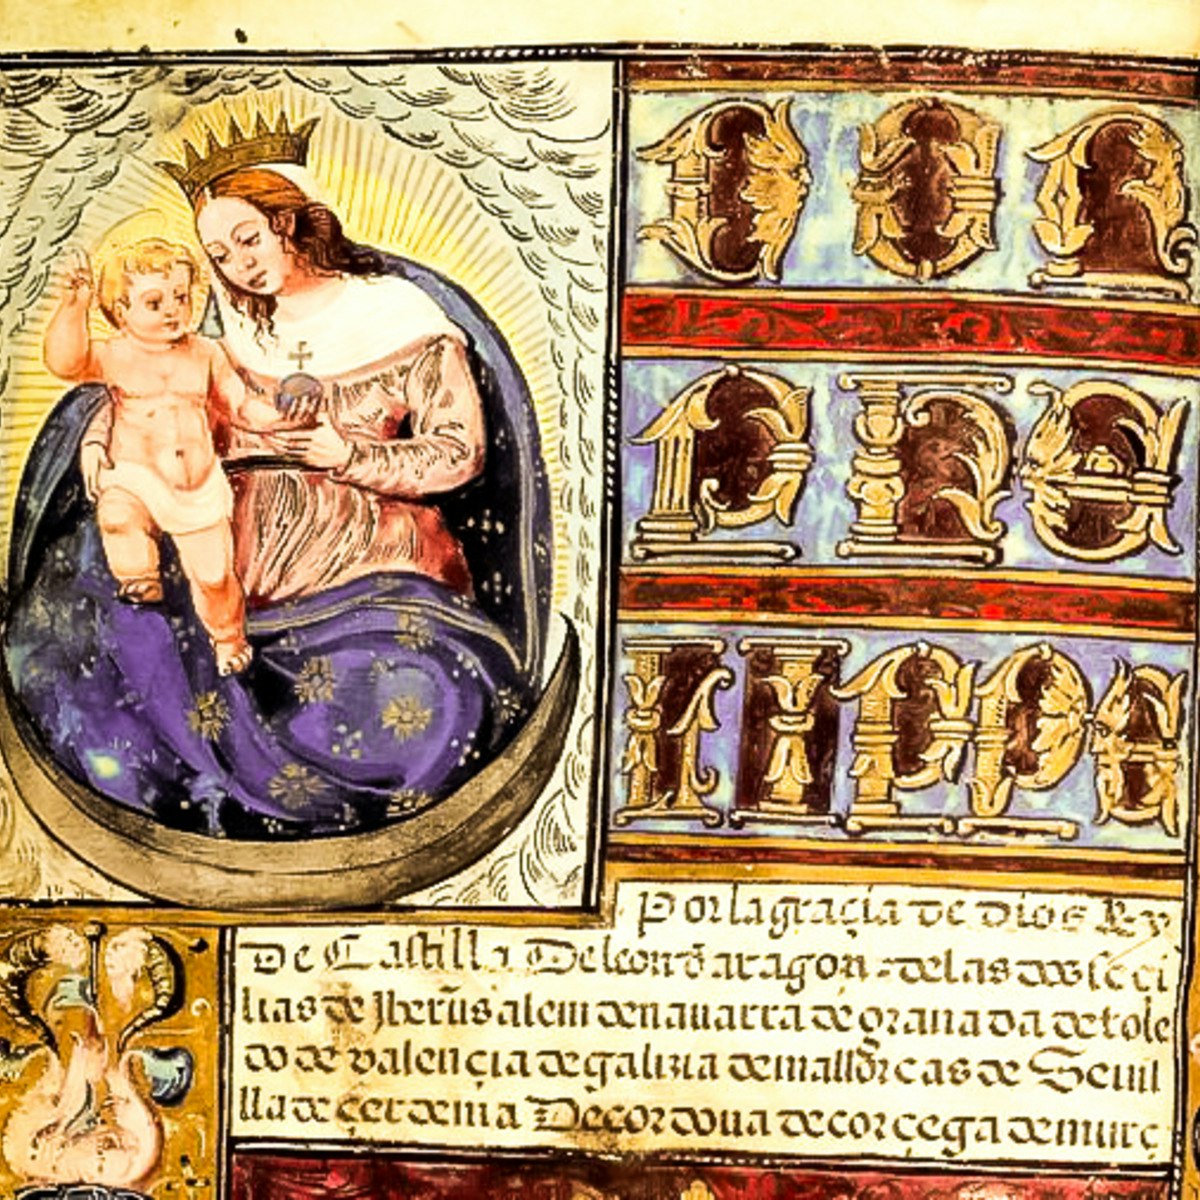 DON
PRE
LIPPE
Por la graçia de dios Rey
De Castilla De leon đ aragon de las dos seçi
lias de Jherusalem de nauarra de granada de tole
do de valençia de galizia de mallorcas de Seuil
lla de çerdenia De cordoua de corçega de murç